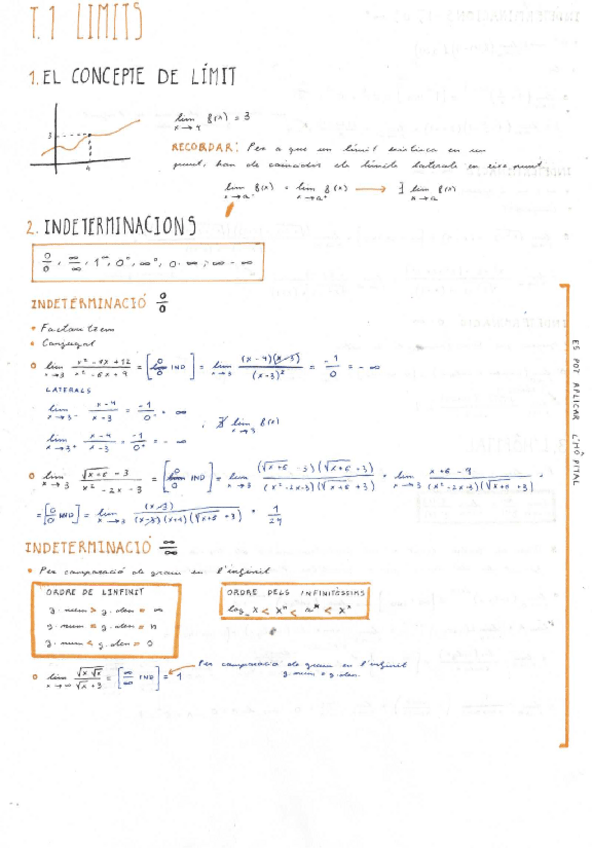 T.1 LIMITS
1. EL CONCEPTE DE LÍMIT
lim x→4 f(x) = 3
3
4
RECORDAR: Per a que un límit existisca en un
punt, han de coincidir els límits laterals en eixe punt.
lim x→a⁻ f(x) = lim x→a⁺ f(x) → ∃ lim x→a f(x)
2. INDETERMINACIONS
0/0, ∞/∞, 1^∞, 0^0, ∞^0, 0·∞, ∞-∞
INDETERMINACIÓ 0/0
• Factoritzem
• Conjugat
lim x→3 (x²-7x+12)/(x²-6x+9) = [0/0 IND] = lim x→3 (x-4)(x-3)/(x-3)² = -1/0 = -∞
LATERALS
lim x→3⁻ (x-4)/(x-3) = -1/0⁻ = ∞
; ∄ lim x→3 f(x)
lim x→3⁺ (x-4)/(x-3) = -1/0⁺ = -∞
lim x→3 (√(x+6) - 3)/(x²-2x-3) = [0/0 IND] = lim x→3 (√(x+6) - 3)(√(x+6) + 3)/(x²-2x-3)(√(x+6) + 3) = lim x→3 (x+6-9)/(x²-2x-3)(√(x+6) + 3) =
= [0/0 IND] = lim x→3 (x-3)/(x-3)(x+1)(√(x+6) + 3) = 1/24
INDETERMINACIÓ ∞/∞
• Per comparació de graus en l'infinit
ORDRE DE L'INFINIT
g. num > g. den = ∞
g. num = g. den = n
g. num < g. den = 0
ORDRE DELS INFINITÈSSIMS
lim x→∞ = [∞/∞ IND] = 1
Per comparació de graus en l'infinit
g. num = g. den.
ES POT APLICAR L'HÔPITAL